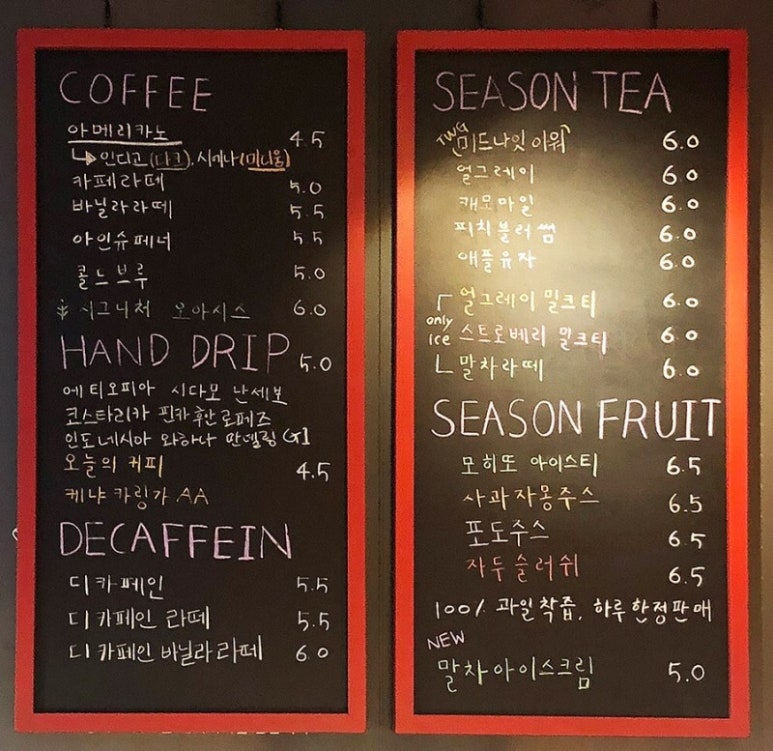 COFFEE
아메리카노 4.5
↳ 인디고 (다크), 시에나 (미디움)
카페라떼 5.0
바닐라라떼 5.5
아인슈페너 5.5
콜드브루 5.0
시그니처 오아시스 6.0
HAND DRIP 5.0
에티오피아 시다모 난세보
코스타리카 핀카 후안 로페즈
인도네시아 와하나 만델링 G1
오늘의 커피 4.5
케냐 카링가 AA
DECAFFEIN
디카페인 5.5
디카페인 라떼 5.5
디카페인 바닐라라떼 6.0
SEASON TEA
TWG 미드나잇 아워 6.0
얼그레이 6.0
캐모마일 6.0
피치블러썸 6.0
애플유자 6.0
얼그레이 밀크티 6.0
only ice 스트로베리 밀크티 6.0
말차라떼 6.0
SEASON FRUIT
모히또 아이스티 6.5
사과자몽주스 6.5
포도주스 6.5
자두슬러쉬 6.5
100% 과일착즙, 하루한정판매
NEW
말차아이스크림 5.0